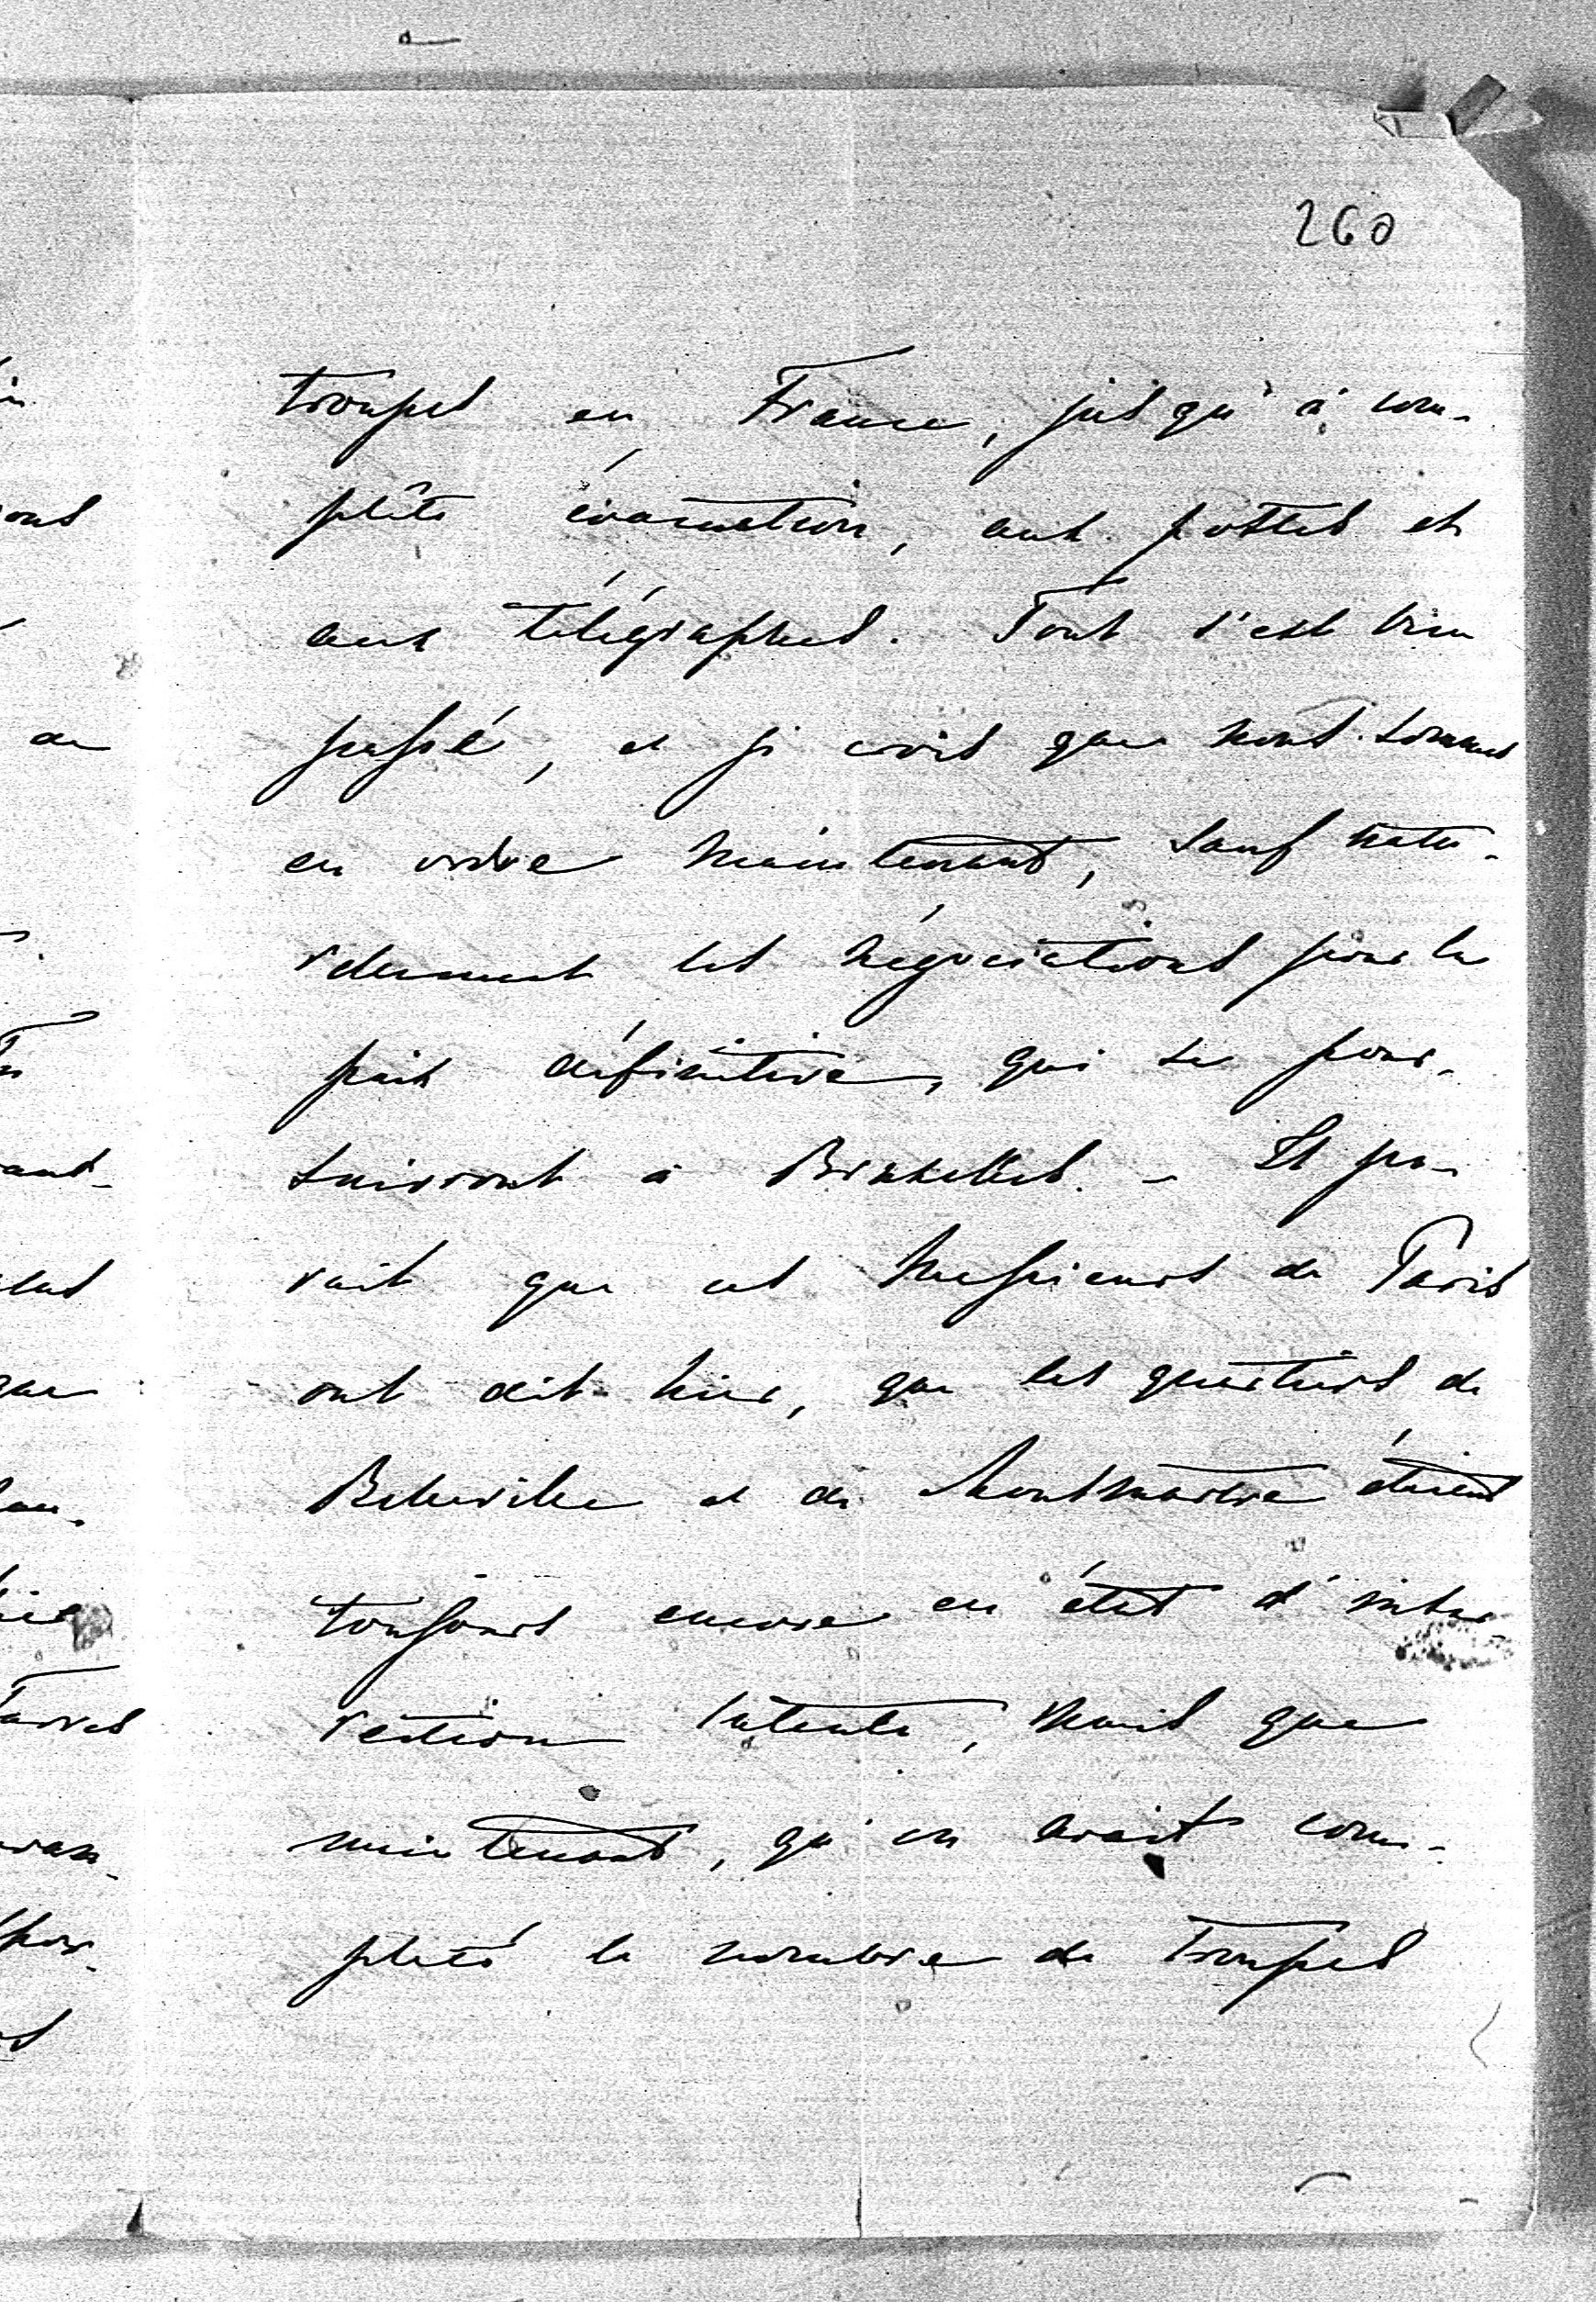 260
troupes en France, jusqu'à com-
plète évacuation, aux postes et
aux télégraphes. Tout s'est bien
passé, et je crois que nous sommes
en ordre maintenant, sauf natu-
rellement les négociations pour la
paix définitive, qui se pour-
suivront à Bruxelles. - Il pa-
rait que ces Messieurs de Paris
ont dit hier, que les quartiers de
Belleville et de Montmartre étaient
toujours encore en état d'insur-
rection latente, mais que
maintenant, qu'on avait com-
pleté le nombre de troupes